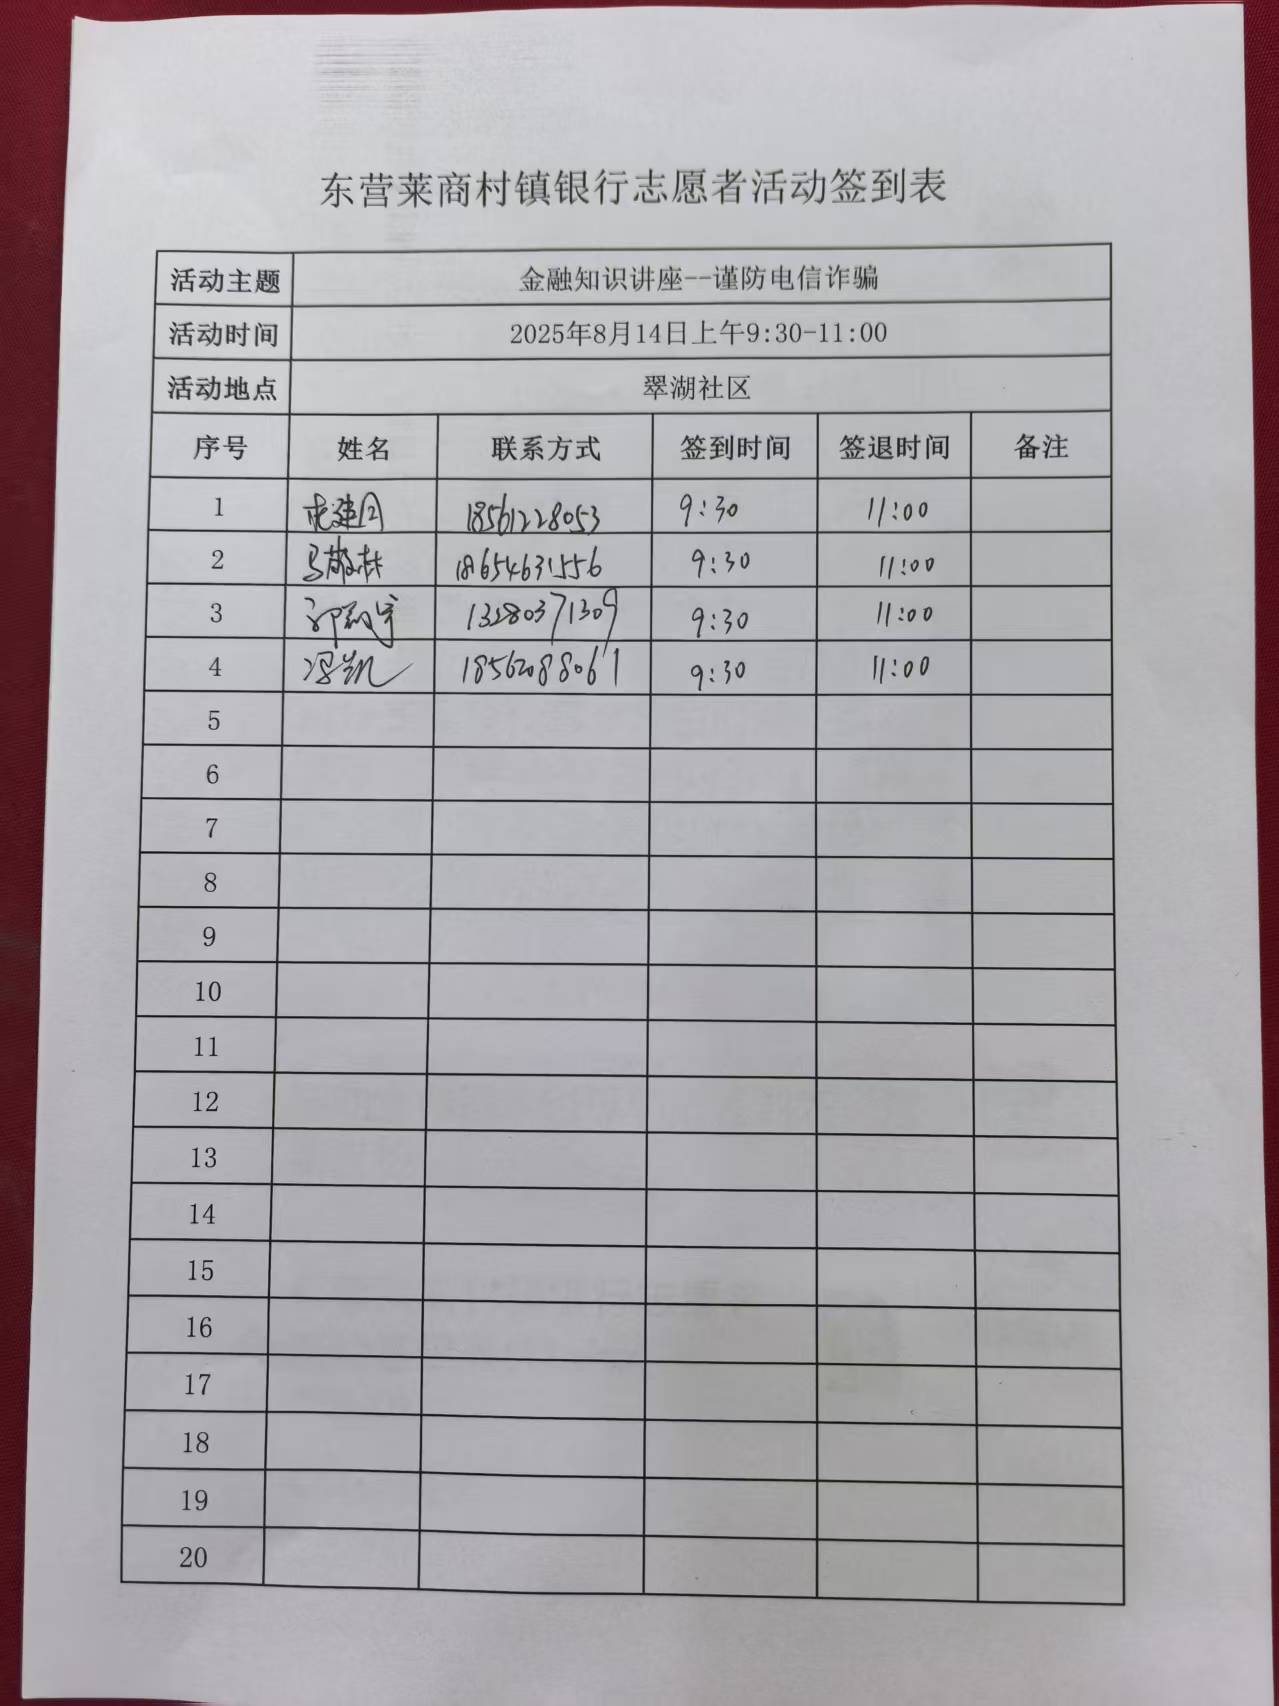 东营莱商村镇银行志愿者活动签到表
活动主题 金融知识讲座--谨防电信诈骗
活动时间 2025年8月14日上午9:30-11:00
活动地点 翠湖社区
序号 姓名 联系方式 签到时间 签退时间 备注
1 18561228053 9:30 11:00
2 马敬林 18654631556 9:30 11:00
3 13280371309 9:30 11:00
4 冯凯 18562088061 9:30 11:00
5
6
7
8
9
10
11
12
13
14
15
16
17
18
19
20